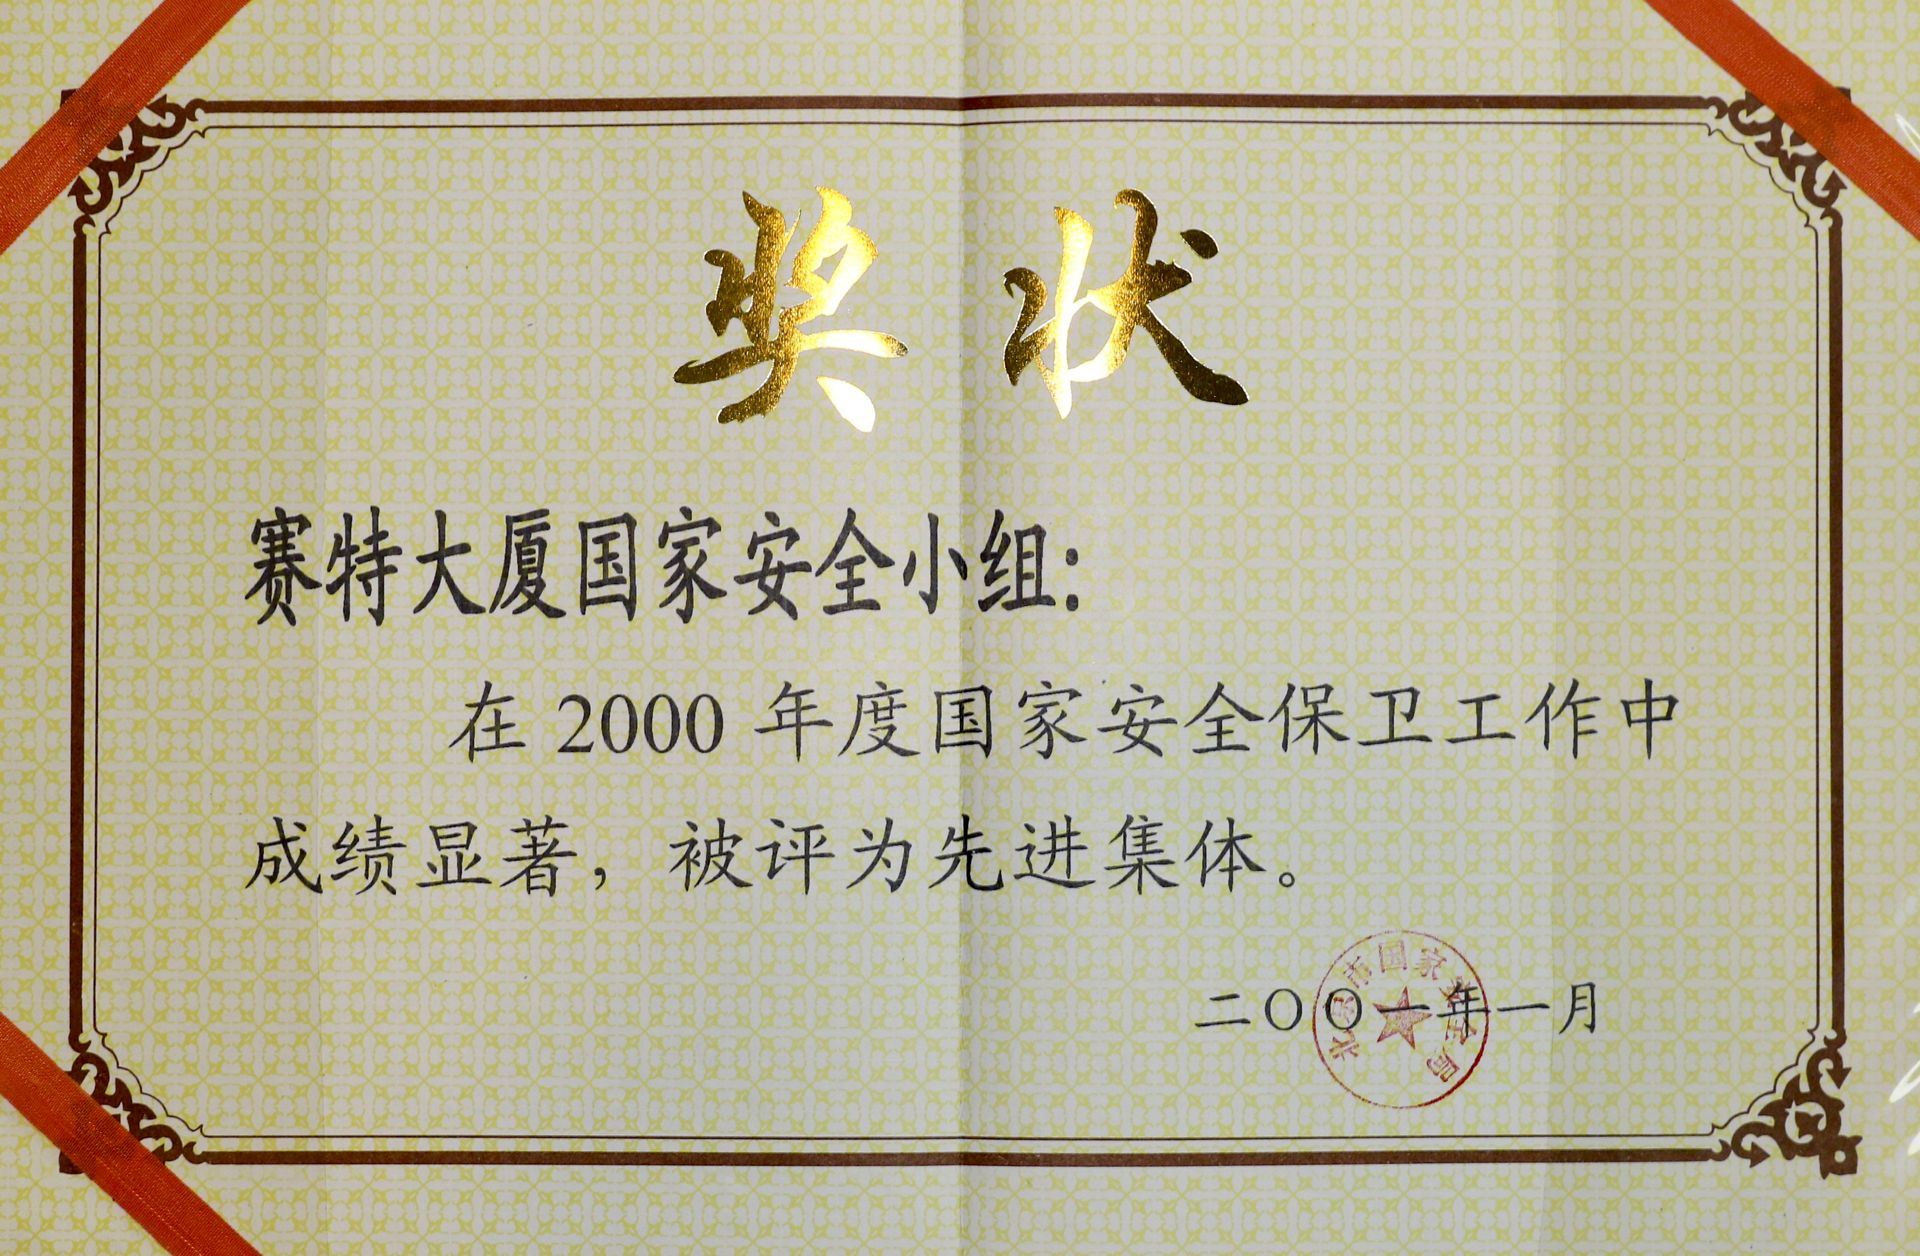 奖状
赛特大厦国家安全小组：
在2000年度国家安全保卫工作中
成绩显著，被评为先进集体。
二〇〇一年一月
北京市国家安全局